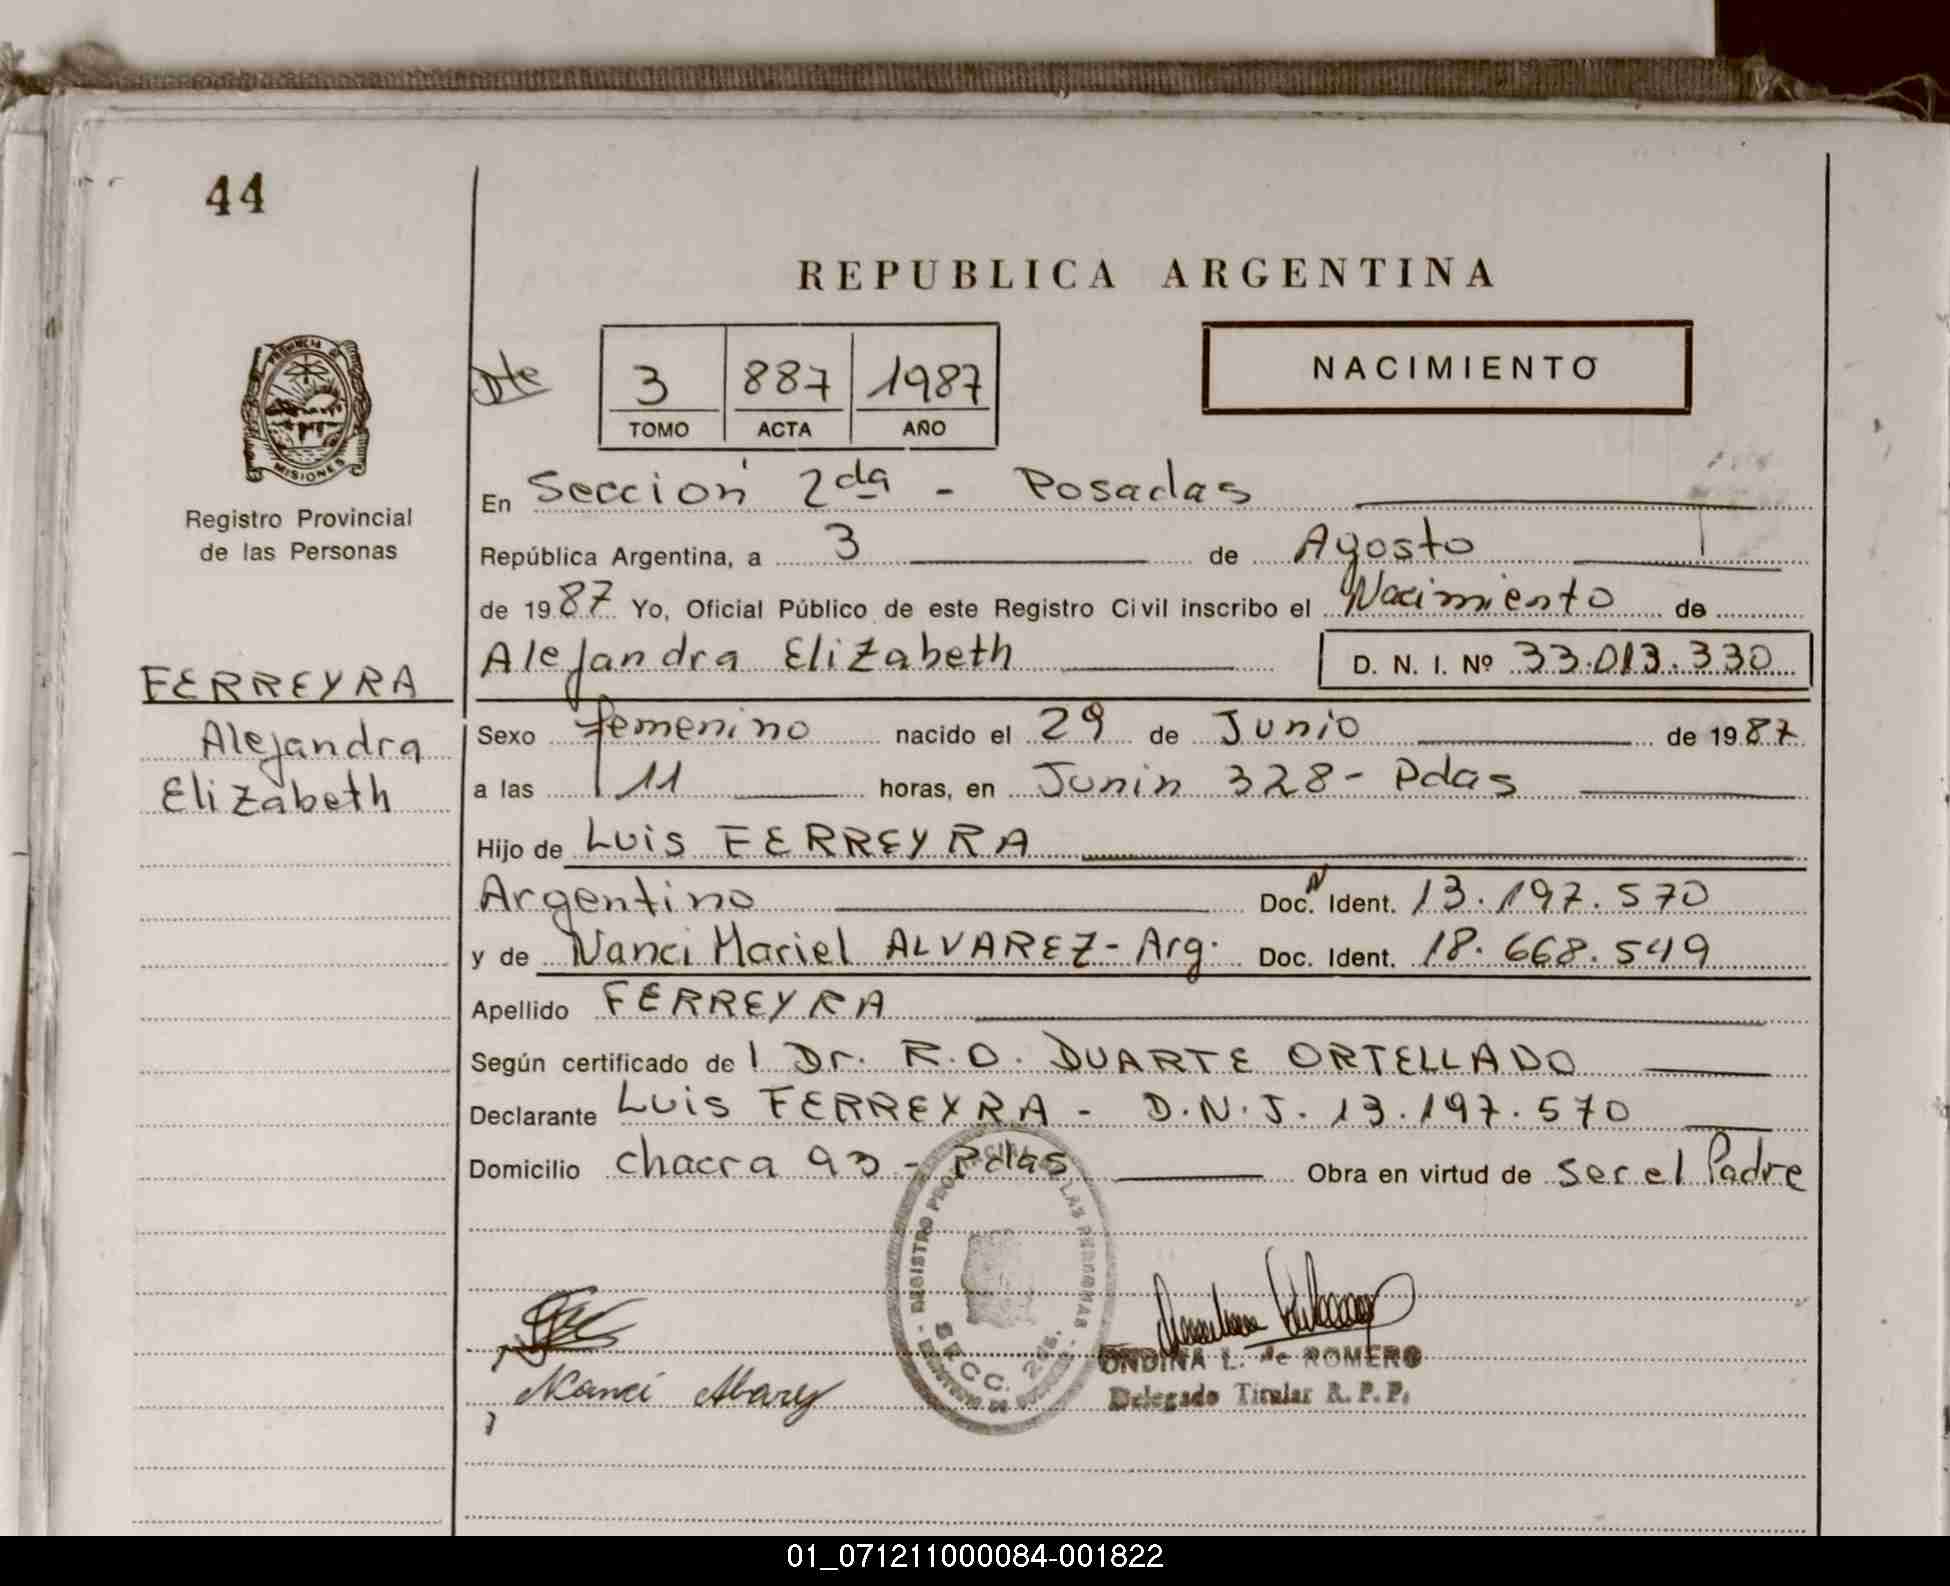 44
REPUBLICA ARGENTINA
Dte
3 887 1987
TOMO ACTA AÑO
NACIMIENTO
PROVINCIA DE
MISIONES
Registro Provincial
de las Personas
En Sección 2da - Posadas
República Argentina, a 3 de Agosto
de 1987 Yo, Oficial Público de este Registro Civil inscribo el Nacimiento de
Alejandra Elizabeth D. N. I. Nº 33.013.330
FERREYRA
Alejandra
Elizabeth
Sexo femenino nacido el 29 de Junio de 1987
a las 11 horas, en Junin 328 - Pdas
Hijo de Luis FERREYRA
Argentino Doc. Ident. 13.197.570
y de Nanci Mariel ALVAREZ - Arg. Doc. Ident. 18.668.549
Apellido FERREYRA
Según certificado de l Dr. R.O. DUARTE ORTELLADO
Declarante Luis FERREYRA - D.N.I. 13.197.570
Domicilio chacra 93 - Pdas Obra en virtud de ser el Padre
REGISTRO PROVINCIAL DE LAS PERSONAS
SECC. 2da.
Nanci Alvarez
ONDINA L. de ROMERO
Delegado Titular R. P. P.
01_071211000084-001822